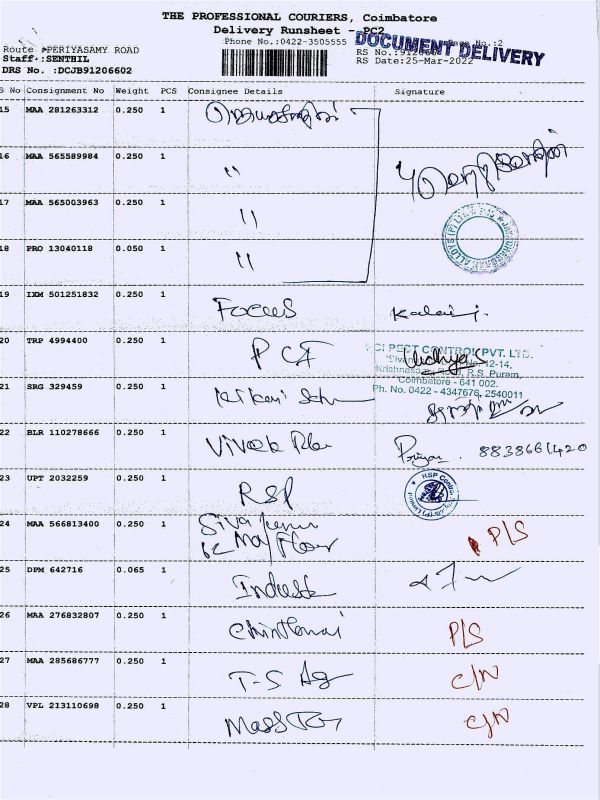 THE PROFESSIONAL COURIERS, Coimbatore
Delivery Runsheet - PC2
Phone No.:0422-3505555
DOCUMENT DELIVERY
Page No.:2
Route :PERIYASAMY ROAD
Staff :SENTHIL
DRS No. :DCJB91206602
RS Date:25-Mar-2022
S No Consignment No Weight PCS Consignee Details Signature
15 MAA 281263312 0.250 1
16 MAA 565589984 0.250 1 "
17 MAA 565003963 0.250 1 "
18 PRO 13040118 0.050 1 "
19 IXM 501251832 0.250 1 Focus
20 TRP 4994400 0.250 1 PCI
PEST CONTROL PVT. LTD.
12-14,
R.S. Puram,
Coimbatore - 641 002.
Ph. No. 0422 - 4347678, 2540011
21 SRG 329459 0.250 1
22 BLR 110278666 0.250 1 Vivek Priya. 8838661420
23 UPT 2032259 0.250 1 RSP
24 MAA 566813400 0.250 1 Siva P/S
25 DPM 642716 0.065 1
26 MAA 276832807 0.250 1 Chinthamai P/S
27 MAA 285686777 0.250 1 T-S Ag C/N
28 VPL 213110698 0.250 1 Mass C/N